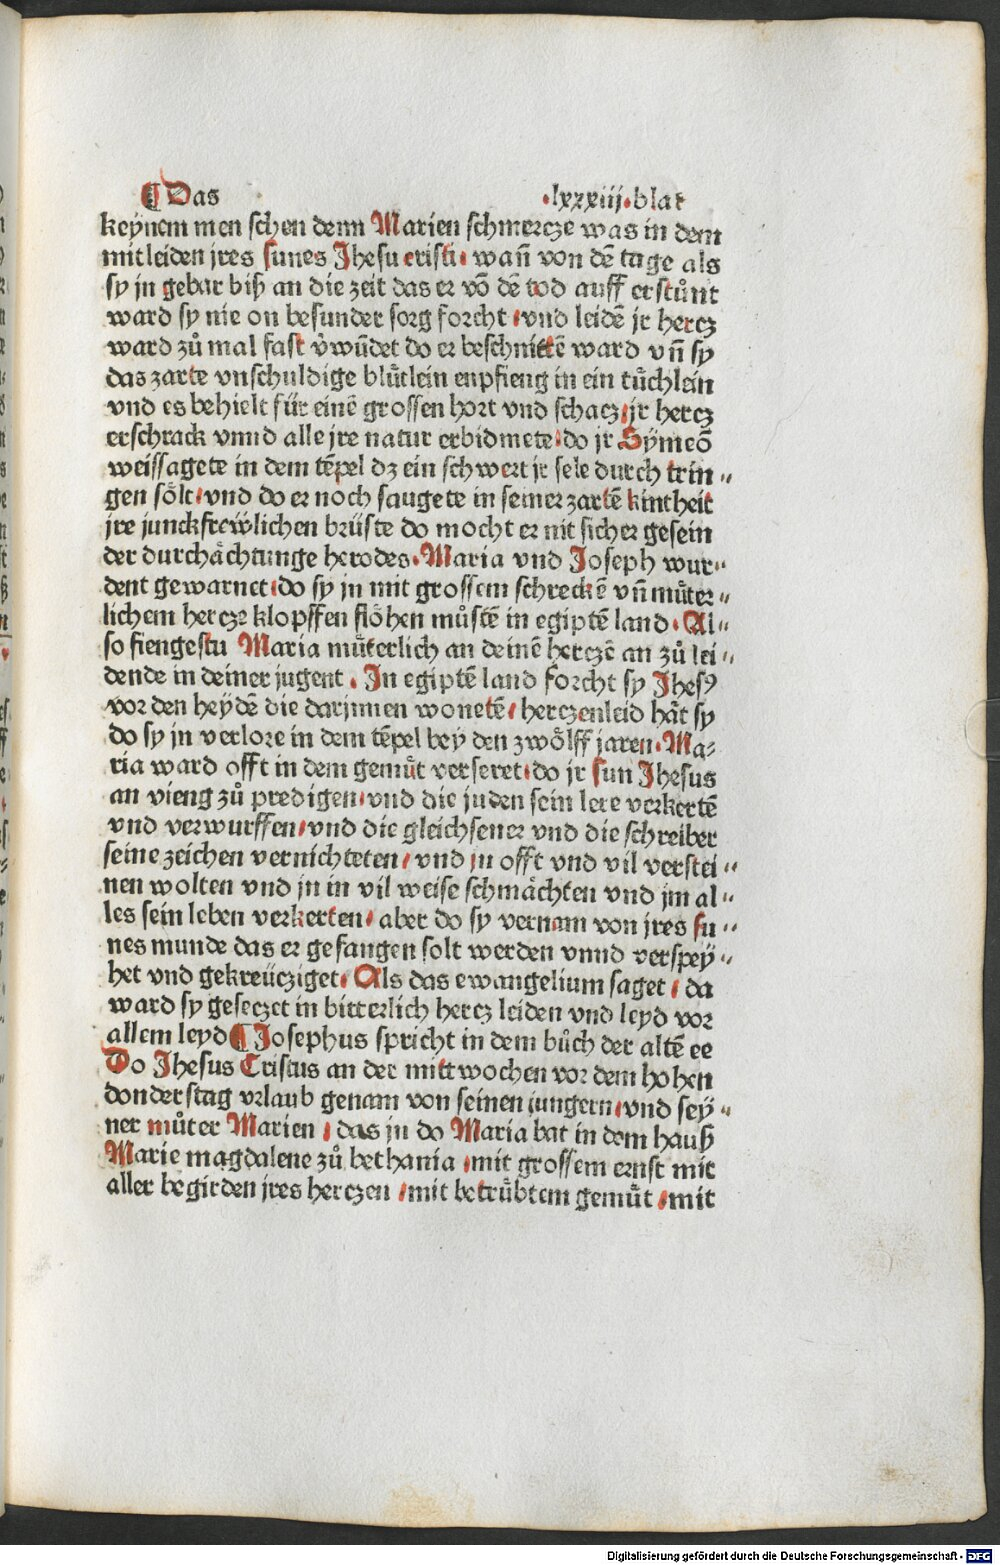 ¶ Das .lxxxiij.blat
keynem men schen denn Marien schmercze was in dem
mitleiden jres sunes Jhesu cristi. wañ von dē tage als
sy jn gebar biß an die zeit das er vō dē tod auff erstůnt
ward sy nie on besunder sorg forcht / vnd leidē jr hercz
ward zů mal fast v̾wūdet do er beschnittē ward vñ sy
das zarte vnschuldige blůtlein enpfieng in ein tůchlein
vnd es behielt für einē grossen hort vnd schacz / jr hercz
erschrack vnnd alle jre natur erbidmete. do jr Sÿmeō
weissagete in dem tēpel dz ein schwert jr sele durch trin⸗
gen sölt / vnd do er noch saugete in seiner zartē kintheit
jre junckfrewlichen brüste do mocht er nit sicher gesein
der durchächtunge herodes. Maria vnd Joseph wur⸗
dent gewarnet. do sy jn mit grossem schreckē vñ můter⸗
lichem hercze klopffen flöhen můstē in egiptē land. Al⸗
so fiengestu Maria můterlich an deinē herczē an zů lei⸗
dende in deiner jugent . In egiptē land forcht sy Jhesꝰ
vor den heydē die darjnnen wonetē / herczenleid hät sy
do sy jn verlore in dem tēpel bey den zwölff jaren. Ma⸗
ria ward offt in dem gemůt verseret. do jr sun Jhesus
an vieng zů predigen / vnd die juden sein lere verkertē
vnd verwurffen / vnd die gleichsener vnd die schreiber
seine zeichen vernichteten / vnd jn offt vnd vil verstei⸗
nen wolten vnd jn in vil weise schmächten vnd jm al⸗
les sein leben verkerten / aber do sy vernam von jres su⸗
nes munde das er gefangen solt werden vnnd verspey⸗
het vnd gekreücziget. Als das ewangelium saget / da
ward sy geseczet in bitterlich hercz leiden vnd leyd vor
allem leyd ¶ Josephus spricht in dem bůch der altē ee
Do Jhesus Cristus an der mittwochen vor dem hohen
donderstag vrlaub genam von seinen jungern / vnd sey⸗
ner můter Marien / das jn do Maria bat in dem hauß
Marie magdalene zů bethania / mit grossem ernst mit
aller begirden jres herczen / mit betrübtem gemůt / mit
Digitalisierung gefördert durch die Deutsche Forschungsgemeinschaft - DFG